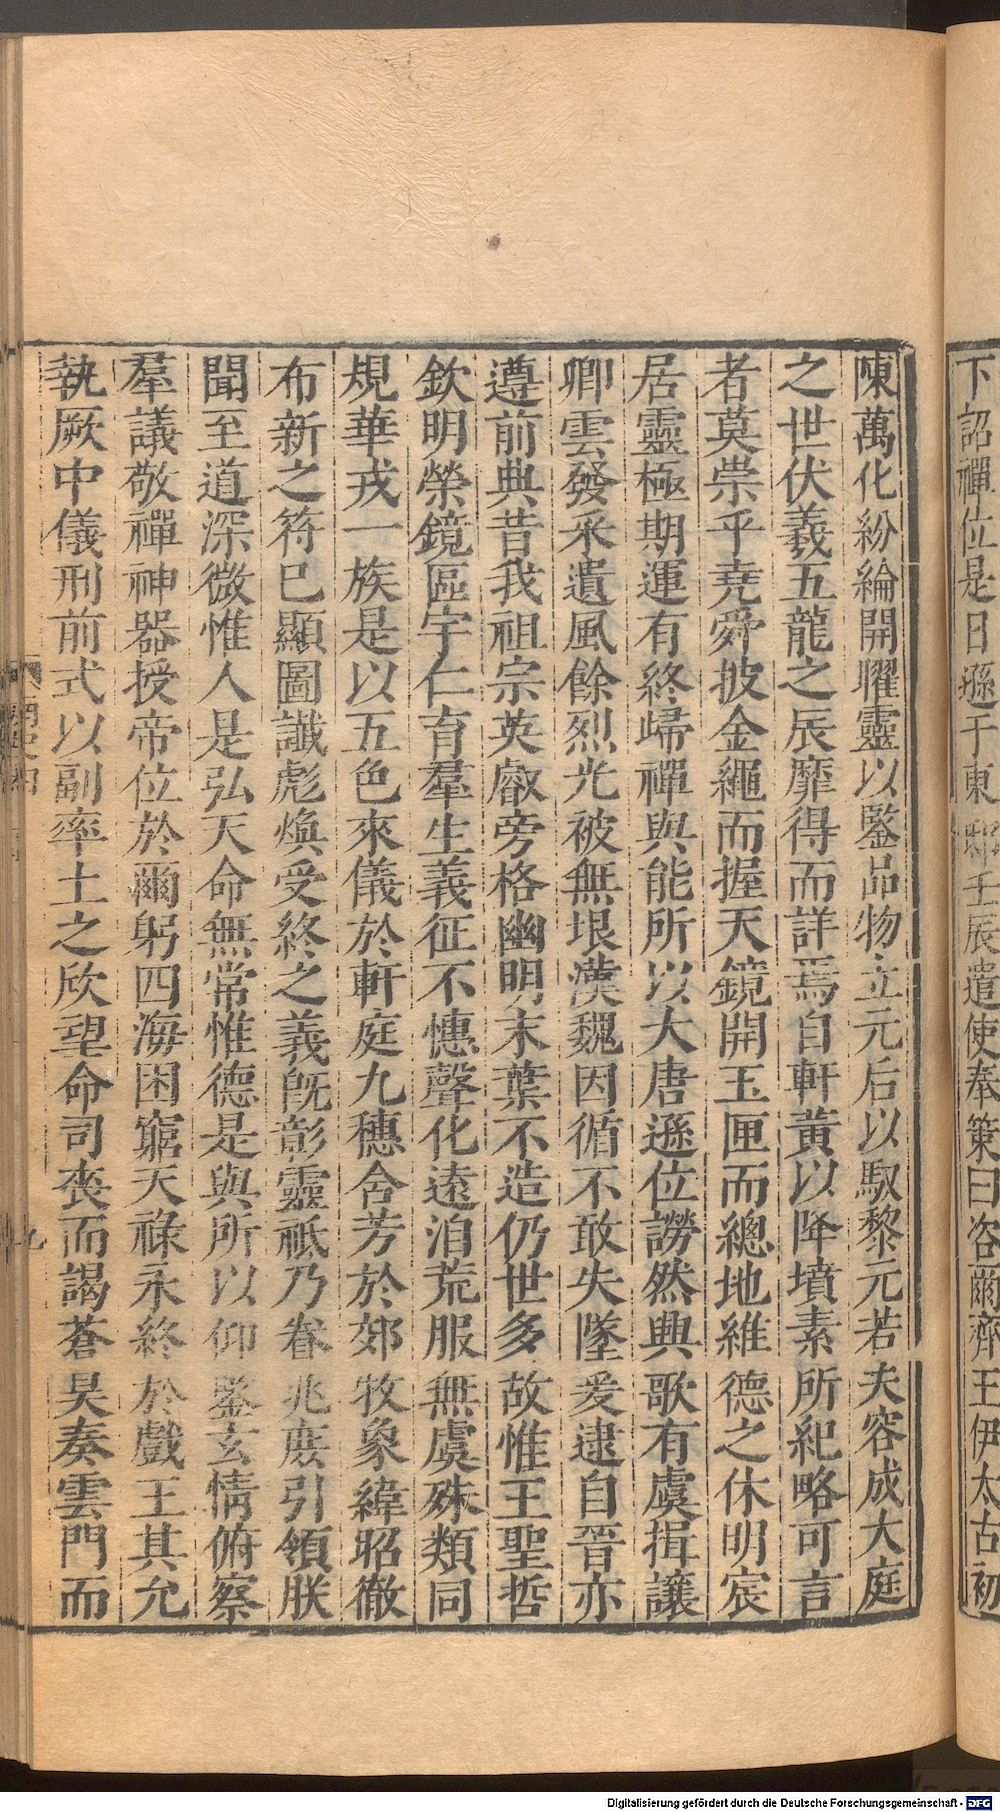 下詔禪位是日遜于東邸壬辰遣使奉策曰咨爾齊王伊太古初
陳萬化紛綸開曜靈以鑒品物立元后以馭黎元若夫容成大庭
之世伏羲五龍之辰靡得而詳焉自軒黃以降墳素所紀略可言
者莫崇乎堯舜披金繩而握天鏡開玉匣而總地維德之休明宸
居靈極期運有終歸禪與能所以大唐遜位謗然興歌有虞揖讓
卿雲發采遺風餘烈光被無垠漢魏因循不敢失墜爰逮自晉亦
遵前典昔我祖宗英叡旁格幽明末葉不造仍世多故惟王聖哲
欽明榮鏡區宇仁育羣生義征不憓聲化遠洎荒服無虞殊類同
規華戎一族是以五色來儀於軒庭九穗含芳於郊牧象緯昭徹
布新之符已顯圖讖彪煥受終之義旣彰靈祗乃眷兆庻引領朕
聞至道深微惟人是弘天命無常惟德是與所以仰鑒玄情俯察
羣議敬禪神器授帝位於爾躬四海困窮天祿永終於戲王其允
執厥中儀刑前式以副率土之欣望命司裘而謁蒼昊奏雲門而
九
Digitalisierung gefördert durch die Deutsche Forschungsgemeinschaft - DFG